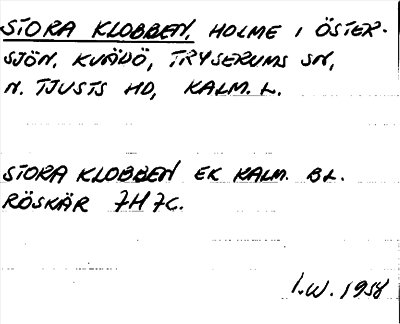 STORA KLOBBEN, HOLME I ÖSTER-
SJÖN, KVÄDÖ, TRYSERUMS SN,
N. TJUSTS HD, KALM. L.
STORA KLOBBEN EK KALM. BL.
RÖSKÄR 7H7C.
I.W. 1958